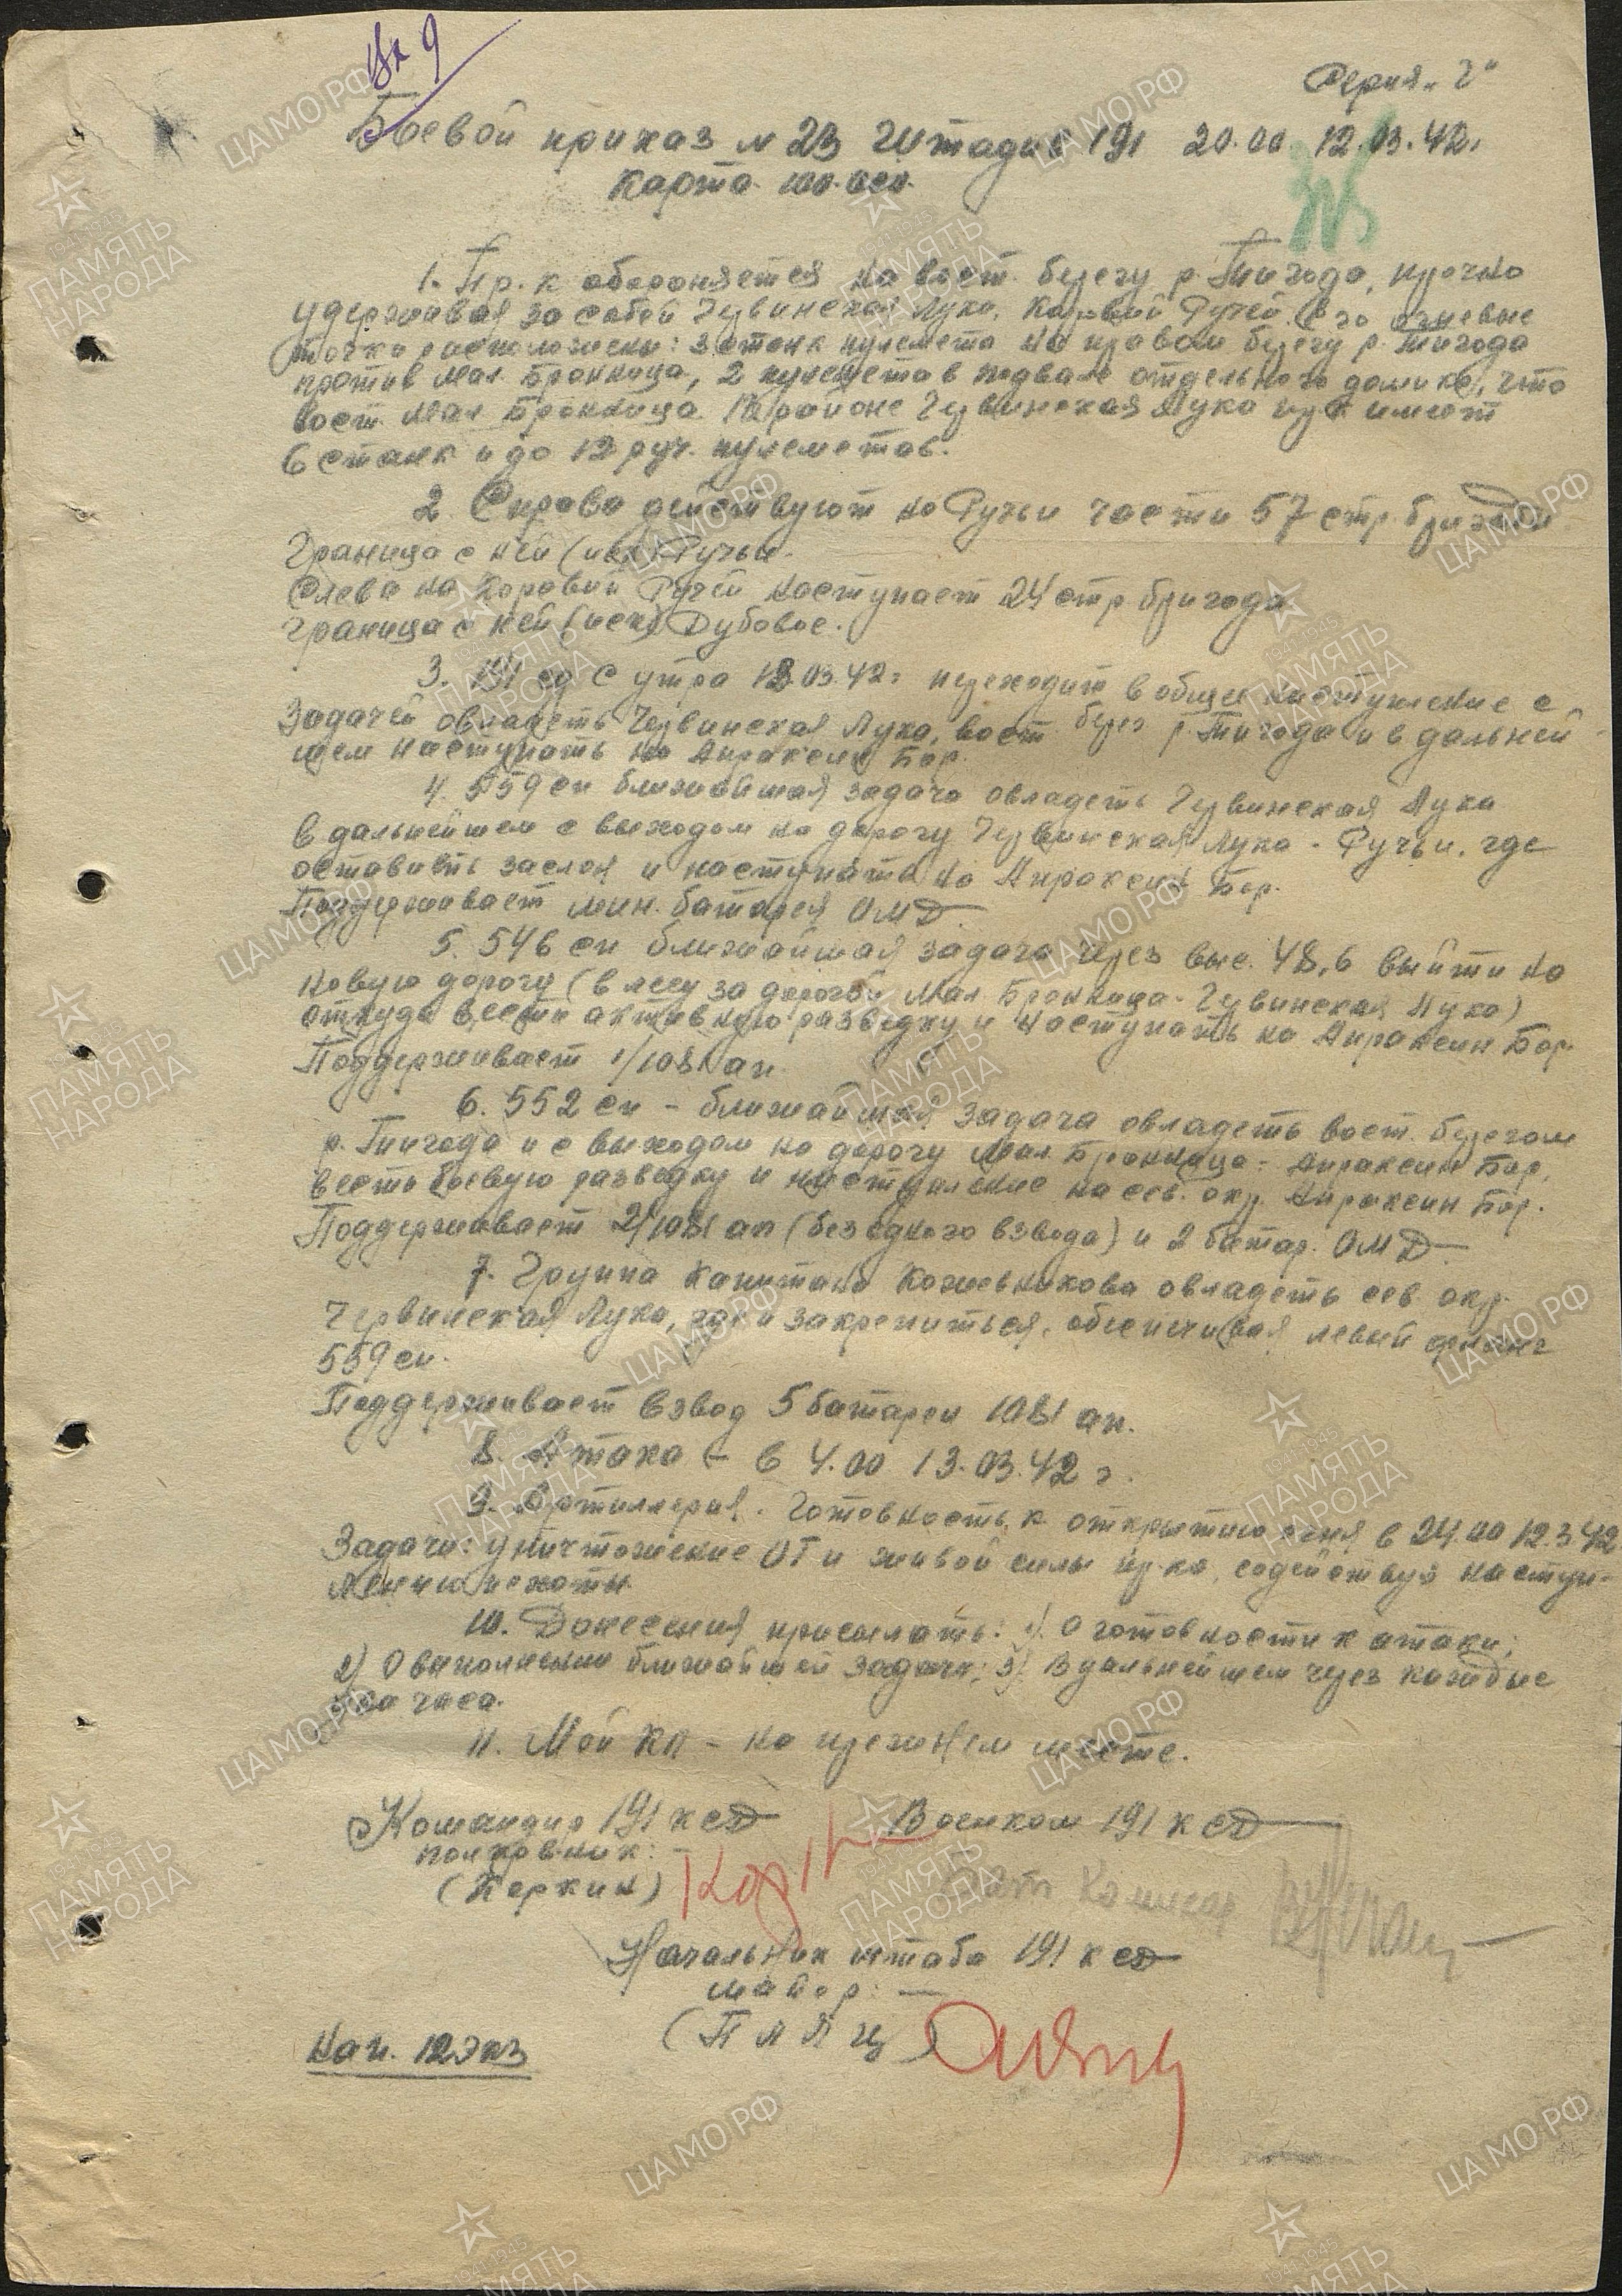 Вх 9
Серия "Г"
Боевой приказ N 23 Штадив 191 20.00 12.03.42г
Карта 100.000.
1. Пр-к обороняется на вост. берегу р. Тигода, прочно
удерживая за собой Червинская Лука, Коровий Ручей. Его огневые
точки расположены: 3 станк пулемета на правом берегу р. Тигода
против Мал. Бронница, 2 пулемета в подвале отдельного домика, что
вост. Мал Бронница. В районе Червинская Лука пр-к имеет
6 станк и до 12 руч. пулеметов.
2. Справа действуют на Ручьи части 57 стр. бригады
Граница с ней (иск) Ручьи.
Слева на Коровий Ручей наступает 24 стр бригада
граница с ней (иск) Дубовое.
3. 191 сд с утра 13.03.42г переходит в общее наступление с
задачей овладеть Червинская Лука, вост. берег р. Тигода и в дальней-
шем наступать на Апраксин Бор.
4. 559 сп ближайшая задача овладеть Червинская Лука
в дальнейшем с выходом на дорогу Червинская Лука - Ручьи, где
оставить заслон и наступать на Апраксин Бор.
Поддерживает мин. батарея ОМД
5. 546 сп ближайшая задача через выс. 48,6 выйти на
новую дорогу (в лесу за дорогой Мал. Бронница - Червинская Лука)
откуда вести активную разведку и наступать на Апраксин Бор.
Поддерживает 1/1081 ап.
6. 552 сп - ближайшая задача овладеть вост. берегом
р. Тигода и с выходом на дорогу Мал Бронница - Апраксин Бор,
вести боевую разведку и наступление на сев. окр. Апраксин Бор.
Поддерживает 2/1081 ап (без одного взвода) и 2 батар. ОМД
7. Группа Капитана Кожевникова овладеть сев окр.
Червинская Лука, где и закрепиться, обеспечивая левый фланг
559 сп.
Поддерживает взвод 5 батареи 1081 ап.
8. Атака - в 4.00 13.03.42г.
9. Артиллерия. Готовность к открытию огня в 24.00 12.3.42
Задачи: уничтожение ОТ и живой силы пр-ка, содействуя наступ-
лению пехоты.
10. Донесения присылать: 1). О готовности к атаки;
2) О выполнении ближайшей задачи; 3). В дальнейшем через каждые
два часа.
11. Мой КП - на прежнем месте.
Командир 191 ксд Военком 191 ксд
полковник:
(Коркин) Бат Комисар
Начальник штаба 191 ксд
майор: —
(Пляц)
Нап. 12 экз
ЦАМО РФ
1941-1945
ПАМЯТЬ
НАРОДА